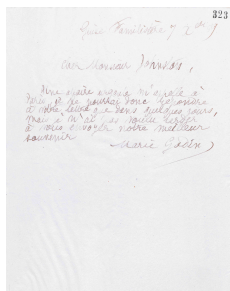 323
Guise Familistère 7
Cher Monsieur Johnson,
Une affaire m'appelle à
Paris je ne pourrai donc répondre
à votre lettre que dans quelques jours,
mais je n'ai pas voulu tarder
à vous envoyer notre meilleur
souvenir
Marie Godin